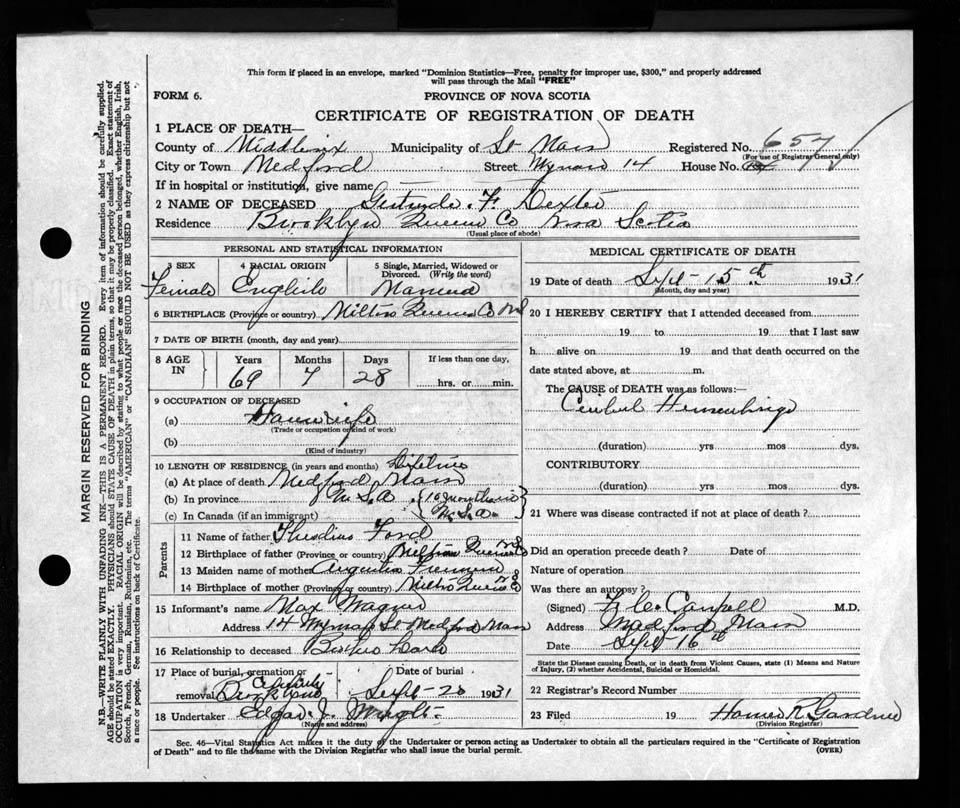 This form if placed in an envelope, marked "Dominion Statistics—Free, penalty for improper use, $300," and properly addressed
will pass through the Mail "FREE"
FORM 6.
PROVINCE OF NOVA SCOTIA
CERTIFICATE OF REGISTRATION OF DEATH
1 PLACE OF DEATH—
County of Middlesex Municipality of Registered No. 657
(For use of Registrar General only)
City or Town Medford Street Wyman 14 House No.
If in hospital or institution, give name
2 NAME OF DECEASED Gertrude F Dexter
Residence Brooklyn Queens Co Nova Scotia
(Usual place of abode)
PERSONAL AND STATISTICAL INFORMATION
3 SEX 4 RACIAL ORIGIN 5 Single, Married, Widowed or Divorced. (Write the word)
Female English Married
6 BIRTHPLACE (Province or country) Milton Queens Co NS
7 DATE OF BIRTH (month, day and year)
8 AGE IN Years Months Days If less than one day,
69 7 28 hrs. or min.
9 OCCUPATION OF DECEASED
(a) Housewife
(Trade or occupation or kind of work)
(b)
(Kind of industry)
10 LENGTH OF RESIDENCE (in years and months) Lifetime
(a) At place of death Medford Mass
(b) In province U.S.A. 10 months in
(c) In Canada (if an immigrant) U.S.A.
Parents
11 Name of father Ford
12 Birthplace of father (Province or country) Milton Queens Co NS
13 Maiden name of mother Augusta Freeman
14 Birthplace of mother (Province or country) Milton Queens Co NS
15 Informant's name Max Wagner
Address 14 Wyman St Medford Mass
16 Relationship to deceased
17 Place of burial, cremation or removal Brooklyn Cemetery Date of burial Sept-20 1931
18 Undertaker Edgar J. Wright
(Name and address)
MEDICAL CERTIFICATE OF DEATH
19 Date of death Sept-15th 1931
(Month, day and year)
20 I HEREBY CERTIFY that I attended deceased from
19 to 19 that I last saw
h alive on 19 and that death occurred on the
date stated above, at m.
The CAUSE of DEATH was as follows:—
Cerebral Hemorrhage
(duration) yrs mos dys.
CONTRIBUTORY
(duration) yrs mos dys.
21 Where was disease contracted if not at place of death?
Did an operation precede death? Date of
Nature of operation
Was there an autopsy?
(Signed) M.D.
Address Medford Mass
Date Sept 16th
State the Disease causing Death, or in death from Violent Causes, state (1) Means and Nature of Injury, (2) whether Accidental, Suicidal or Homicidal.
22 Registrar's Record Number
23 Filed 19 Homer R. Gardner
(Division Registrar)
Sec. 46—Vital Statistics Act makes it the duty of the Undertaker or person acting as Undertaker to obtain all the particulars required in the "Certificate of Registration
of Death" and to file the same with the Division Registrar who shall issue the burial permit.
(OVER)
MARGIN RESERVED FOR BINDING
N.B.—WRITE PLAINLY WITH UNFADING INK—THIS IS A PERMANENT RECORD. Every item of information should be carefully supplied.
AGE should be stated EXACTLY. PHYSICIANS should STATE CAUSE OF DEATH in plain terms, so that it may be properly classified. Exact statement of
OCCUPATION is very important. RACIAL ORIGIN will be described by stating to what people or race the deceased person belonged, whether English, Irish,
Scotch, French, German, Russian, Ruthenian, etc. The terms "AMERICAN" or "CANADIAN" SHOULD NOT BE USED as they express citizenship but not
a race or people. See instructions on back of Certificate.